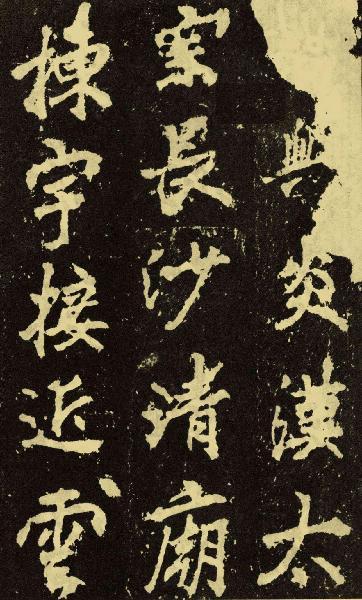 興炎漢太
宗長沙清廟
棟宇接近雲